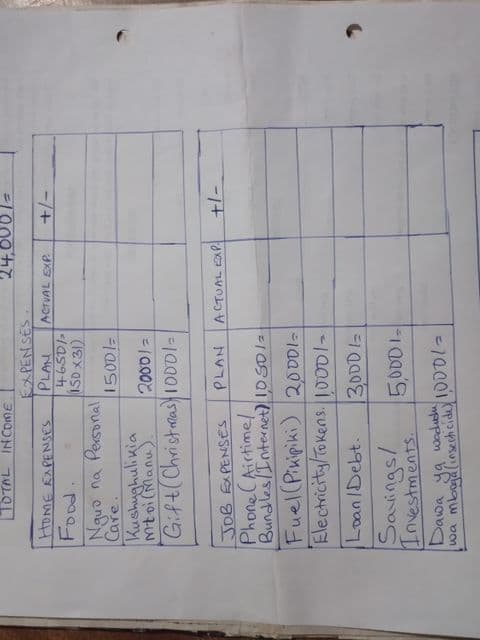 TOTAL INCOME 24,000/=
EXPENSES.
HOME EXPENSES PLAN ACTUAL EXP. +/-
Food. 4650/=
(150 x 31)
Nguo na Personal
Care. 1500/=
Kushughulikia
mtoi (Manu). 2000/=
Gift (Christmas) 1000/=
JOB EXPENSES PLAN ACTUAL EXP. +/-
Phone (Airtime/
Bundles/Internet) 1050/=
Fuel (Pikipiki) 2,000/=
Electricity/Tokens. 1,000/=
Loan/Debt. 3,000/=
Savings/
Investments. 5,000/=
Dawa ya wadudu
wa mboga (insecticide) 1,000/=